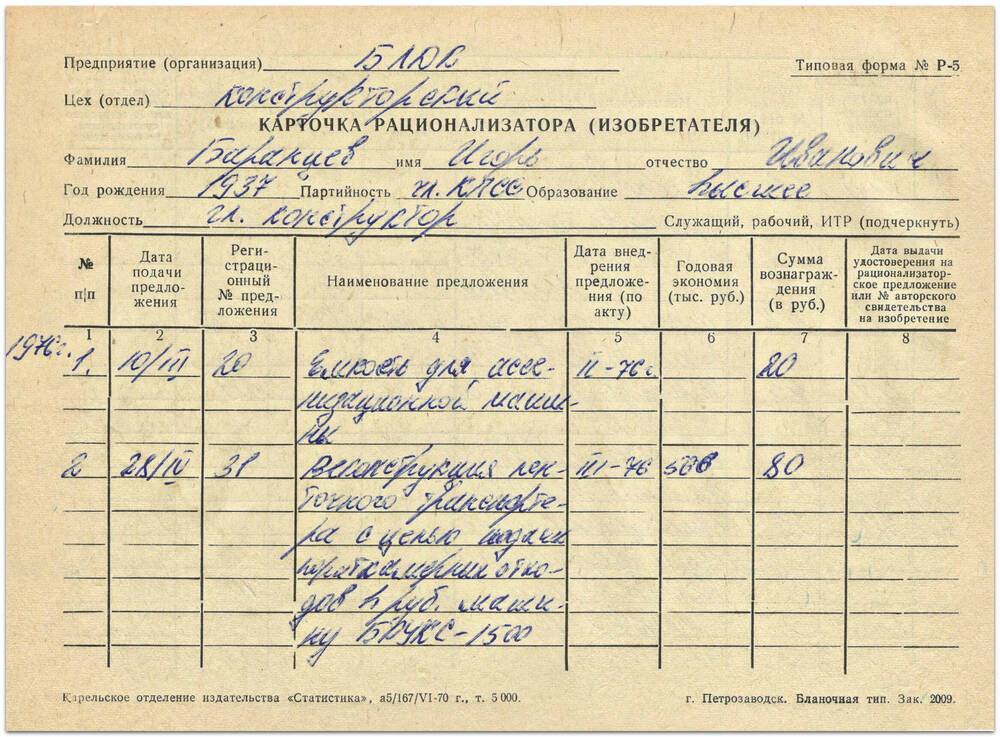 Предприятие (организация) БЛЮК Типовая форма № Р-5
Цех (отдел) конструкторский
КАРТОЧКА РАЦИОНАЛИЗАТОРА (ИЗОБРЕТАТЕЛЯ)
Фамилия Баранцев имя Игорь отчество Иванович
Год рождения 1937 Партийность чл. КПСС Образование высшее
Должность гл. конструктор Служащий, рабочий, ИТР (подчеркнуть)
№ п|п
Дата подачи предло-
жения
Реги-
страцион-
ный
№ пред-
ложения
Наименование предложения
Дата внед-
рения
предложе-
ния (по
акту)
Годовая
экономия
(тыс. руб.)
Сумма
вознаграж-
дения
(в руб.)
Дата выдачи
удостоверения на
рационализатор-
ское предложение
или № авторского
свидетельства
на изобретение
1 2 3 4 5 6 7 8
1976г.
1. 10/III 20 Емкость для ассе-
низационной маши-
ны
II-76г 20
2 28/IV 31 Реконструкция лен-
точного транспорте-
ра с целью подачи
короткомерных отхо-
дов в руб. маши-
ну БРУКС-1500
III-76 500 80
Карельское отделение издательства «Статистика», а5/167/VI-70 г., т. 5 000. г. Петрозаводск. Бланочная тип. Зак. 2009.